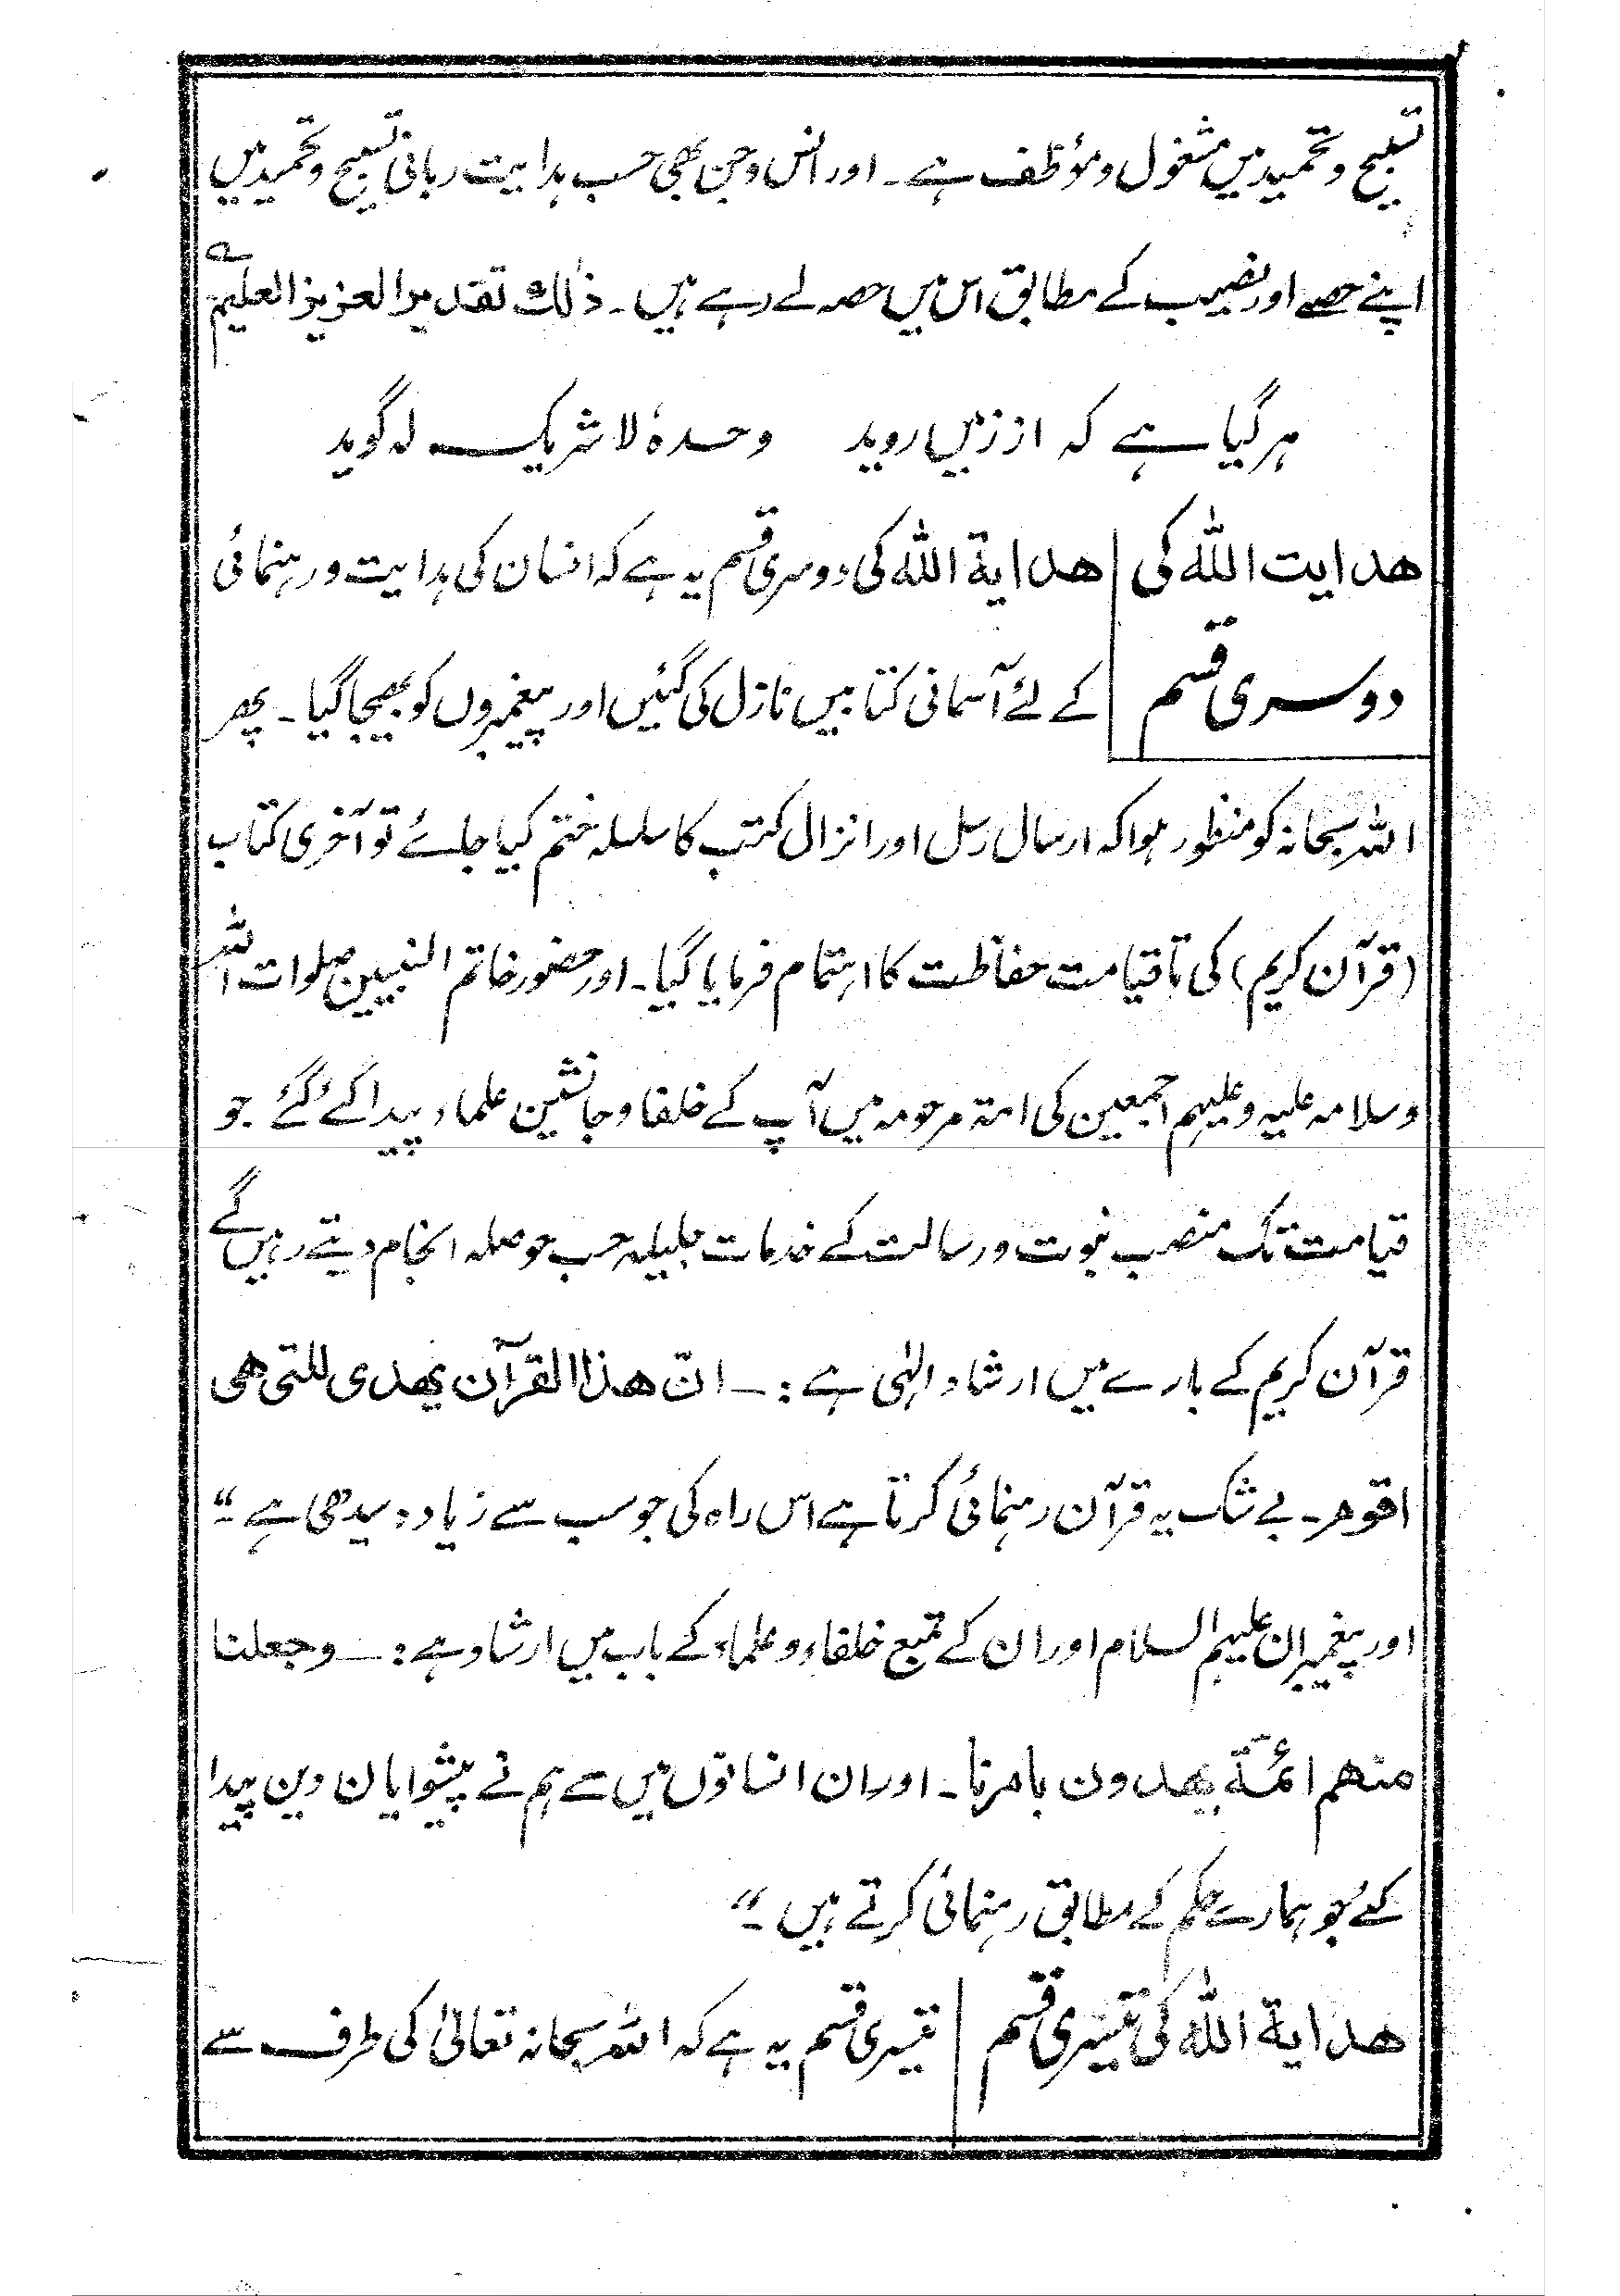 تسبیح و تحمید میں مشغول و مؤظف ہے۔ اور انس و جن بھی حسب ہدایت ربانی تسبیح و تحمید میں
اپنے حصے اور نصیب کے مطابق اس میں حصہ لے رہے ہیں۔ ذٰلك تقدیر العزیز العلیم ؎
ہر گیا ہے کہ از زمیں روید وحدہٗ لا شریک لہ گوید
ھدایت اللہ کی
دوسری قسم
ھدایة اللہ کی دوسری قسم یہ ہے کہ انسان کی ہدایت و رہنمائی
کے لئے آسمانی کتابیں نازل کی گئیں اور پیغمبروں کو بھیجا گیا۔ پھر
اللہ سبحانہ کو منظور ہوا کہ ارسال رسل اور انزال کتب کا سلسلہ ختم کیا جائے تو آخری کتاب
(قرآن کریم) کی تاقیامت حفاظت کا اہتمام فرمایا گیا۔ اور حضور خاتم النبیین صلوات اللہ
وسلامہ علیہ وعلیہم اجمعین کی امۃ مرحومہ میں آپ کے خلفا و جانشین علماء پیدا کئے گئے جو
قیامت تک منصب نبوت و رسالت کے خدمات جلیلہ حسب حوصلہ انجام دیتے رہیں گے
قرآن کریم کے بارے میں ارشاد الٰہی ہے :۔ انّ ھذا القرآن یھدی للتی ھی
اقوم۔ بے شک یہ قرآن رہنمائی کرتا ہے اس راہ کی جو سب سے زیادہ سیدھی ہے۔“
اور پیغمبران علیہم السلام اور ان کے متبع خلفاء و علماء کے باب میں ارشاد ہے :۔ وجعلنا
منھم ائمّة یھدون بامرنا۔ اور ان انسانوں میں سے ہم نے پیشوایان دین پیدا
کئے جو ہمارے حکم کے مطابق رہنمائی کرتے ہیں۔“
ھدایة اللہ کی تیسری قسم
تیسری قسم یہ ہے کہ اللہ سبحانہ تعالیٰ کی طرف سے